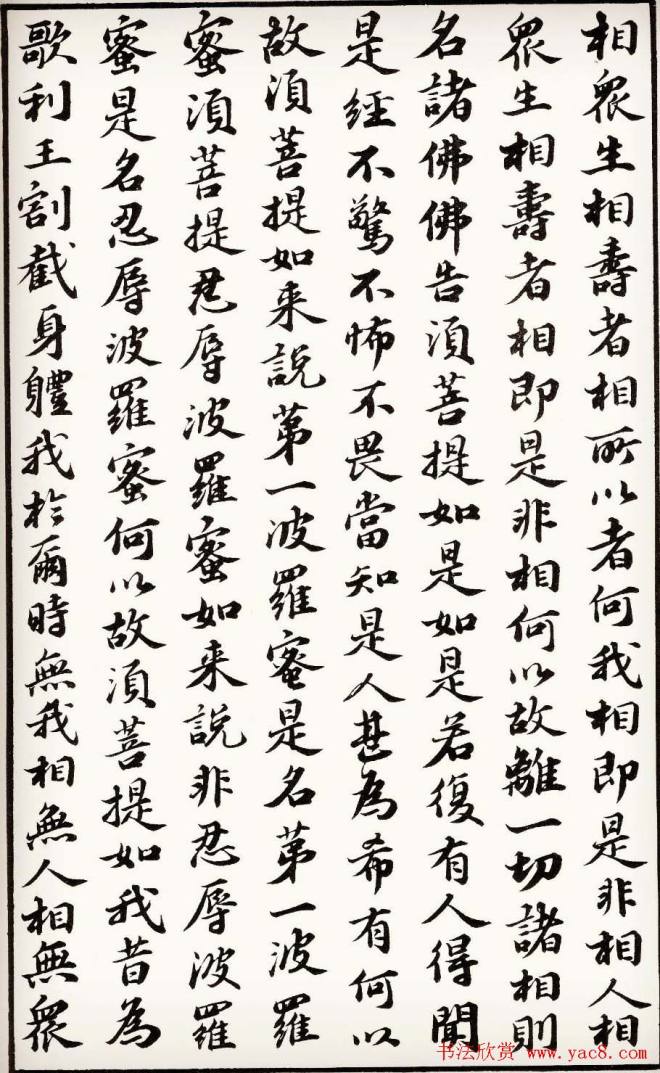 相眾生相壽者相所以者何我相即是非相人相
眾生相壽者相即是非相何以故離一切諸相則
名諸佛佛告須菩提如是如是若復有人得聞
是經不驚不怖不畏當知是人甚為希有何以
故須菩提如来說第一波羅蜜是名第一波羅
蜜須菩提忍辱波羅蜜如来說非忍辱波羅
蜜是名忍辱波羅蜜何以故須菩提如我昔為
歌利王割截身體我於爾時無我相無人相無眾
书法欣赏 www.yac8.com